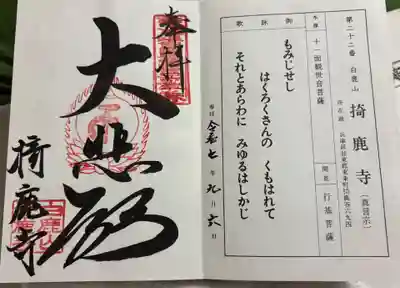 第二十二番 白鹿山 掎鹿寺（真言宗）
所在地 兵庫県加東郡東条町掎鹿谷六九四
本尊 十一面観世音菩薩 開基 行基菩薩
御詠歌
もみじせし
はくろくさんの くもはれて
それとあらわに みゆるはしかじ
令和七年九月六日
奉拝
大悲殿
掎鹿寺